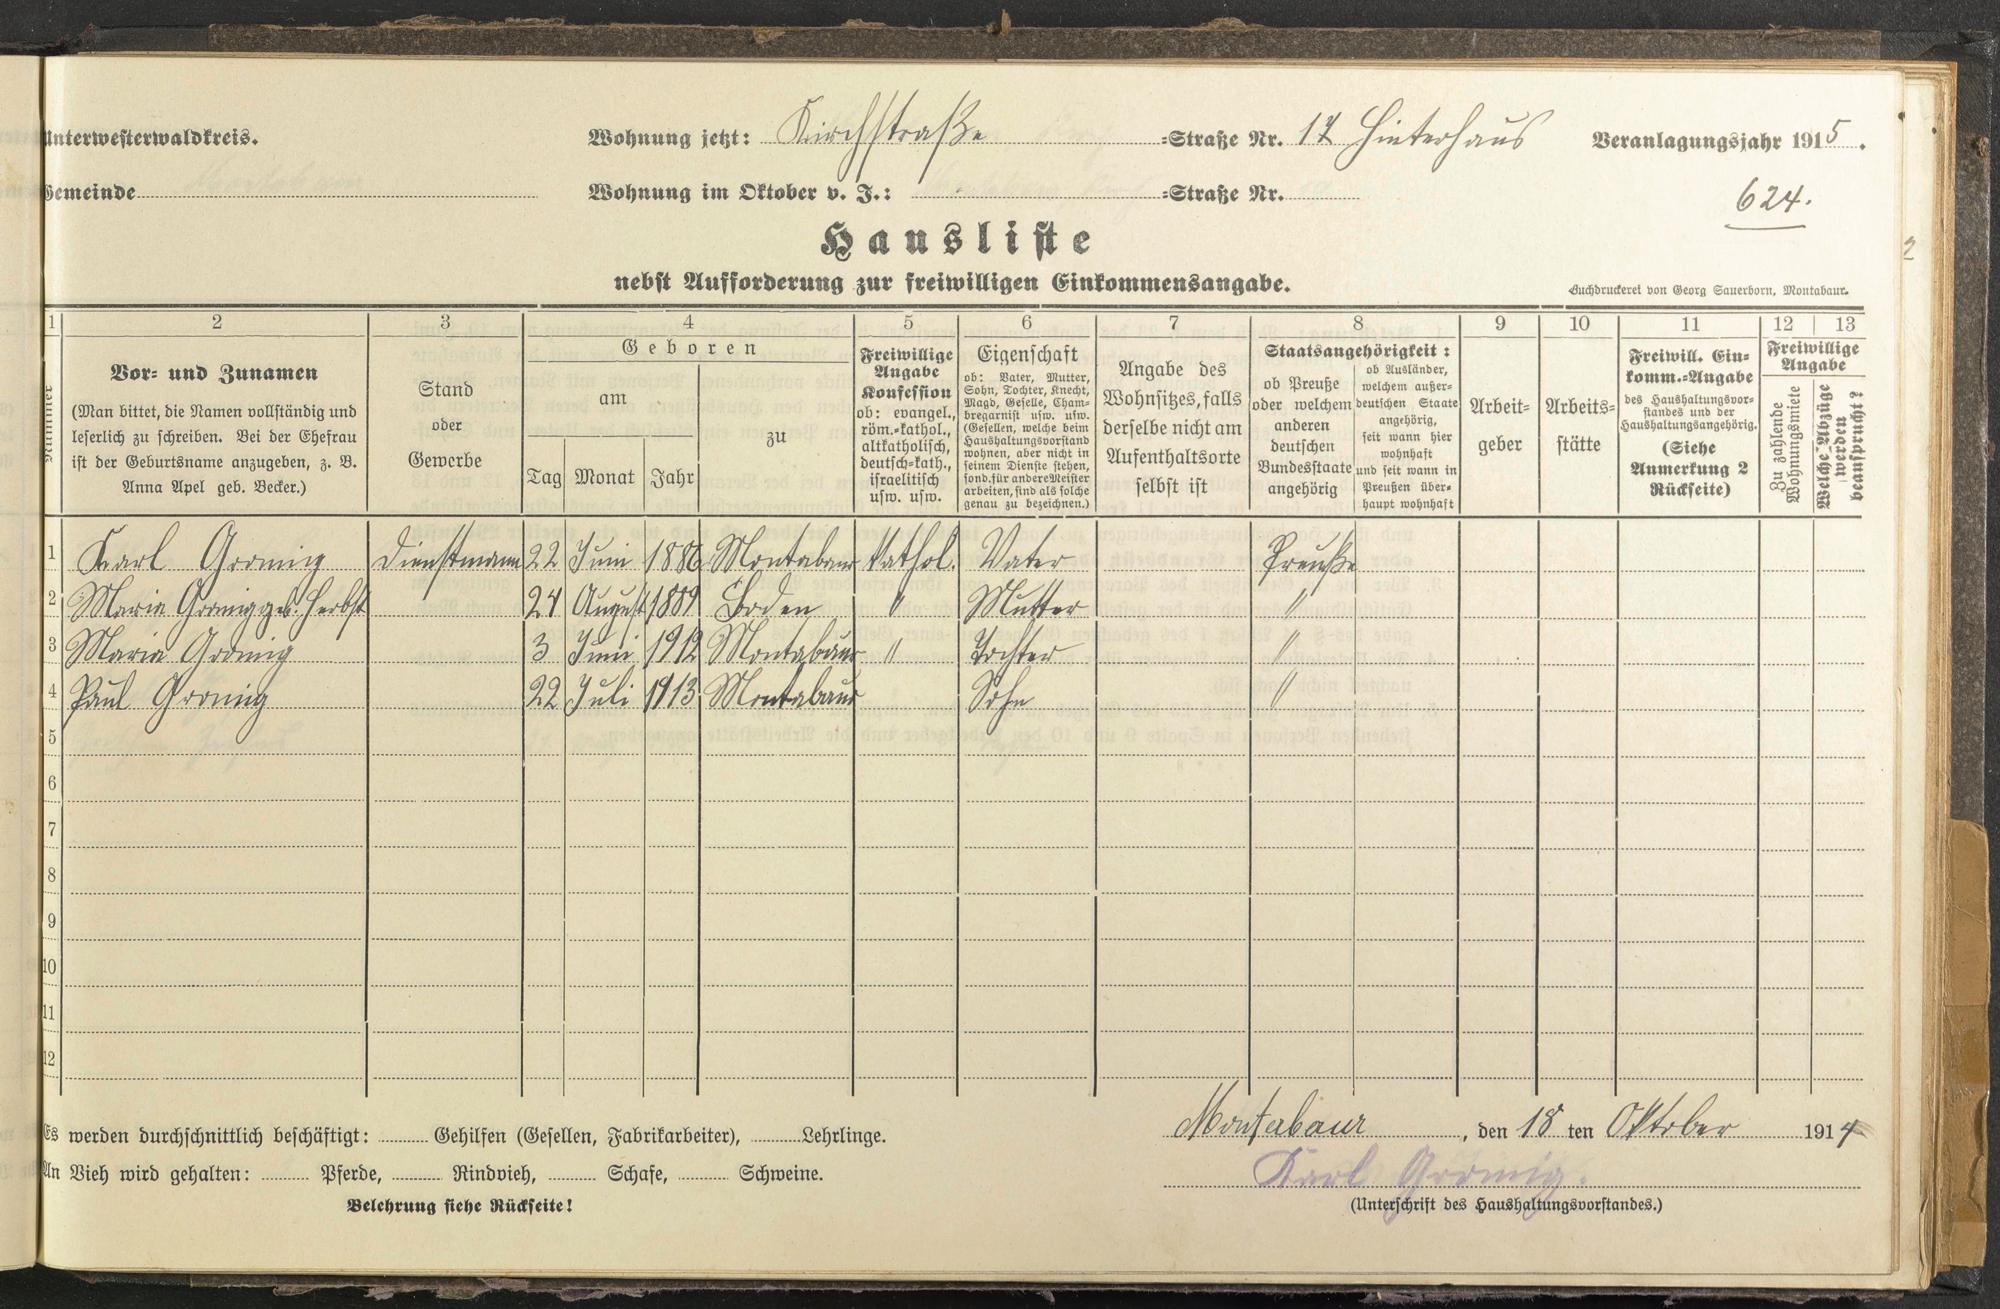 Unterwesterwaldkreis.
Wohnung jetzt: Kirchstraße =Straße Nr. 17 Hinterhaus
Veranlagungsjahr 1915.
Gemeinde
Wohnung im Oktober v. J.: =Straße Nr.
624.
Hausliste
nebst Aufforderung zur freiwilligen Einkommensangabe.
Buchdruckerei von Georg Sauerborn, Montabaur.
1 2 3 4 5 6 7 8 9 10 11 12 13
Nummer
Vor= und Zunamen
(Man bittet, die Namen vollständig und
leserlich zu schreiben. Bei der Ehefrau
ist der Geburtsname anzugeben, z. B.
Anna Apel geb. Becker.)
Stand
oder
Gewerbe
Geboren
am
Tag Monat Jahr
zu
Freiwillige
Angabe
Konfession
ob: evangel.,
röm.=kathol.,
altkatholisch,
deutsch=kath.,
israelitisch
usw. usw.
Eigenschaft
ob: Vater, Mutter,
Sohn, Tochter, Knecht,
Magd, Geselle, Cham=
bregarnist usw. usw.
(Gesellen, welche beim
Haushaltungsvorstand
wohnen, aber nicht in
seinem Dienste stehen,
sond. für andere Meister
arbeiten, sind als solche
genau zu bezeichnen.)
Angabe des
Wohnsitzes, falls
derselbe nicht am
Aufenthaltsorte
selbst ist
Staatsangehörigkeit:
ob Preuße
oder welchem
anderen
deutschen
Bundesstaate
angehörig
ob Ausländer,
welchem außer=
deutschen Staate
angehörig,
seit wann hier
wohnhaft
und seit wann in
Preußen über=
haupt wohnhaft
Arbeit=
geber
Arbeits=
stätte
Freiwill. Ein=
komm.=Angabe
des Haushaltungsvor=
standes und der
Haushaltungsangehörig.
(Siehe
Anmerkung 2
Rückseite)
Freiwillige
Angabe
Zu zahlende
Wohnungsmiete
Welche Abzüge
werden
beansprucht?
1 Karl Gromig Dienstmann 22 Juni 1886 Montabaur kathol. Vater Preuße
2 Maria Gromig geb. Herbst 24 August 1889 Boden " Mutter "
3 Maria Gromig 3 Juni 1912 Montabaur " Tochter "
4 Paul Gromig 22 Juli 1913 Montabaur Sohn "
5
6
7
8
9
10
11
12
Es werden durchschnittlich beschäftigt: Gehilfen (Gesellen, Fabrikarbeiter), Lehrlinge.
Montabaur, den 18 ten Oktober 1914
An Vieh wird gehalten: Pferde, Rindvieh, Schafe, Schweine.
Karl Gromig.
Belehrung siehe Rückseite!
(Unterschrift des Haushaltungsvorstandes.)